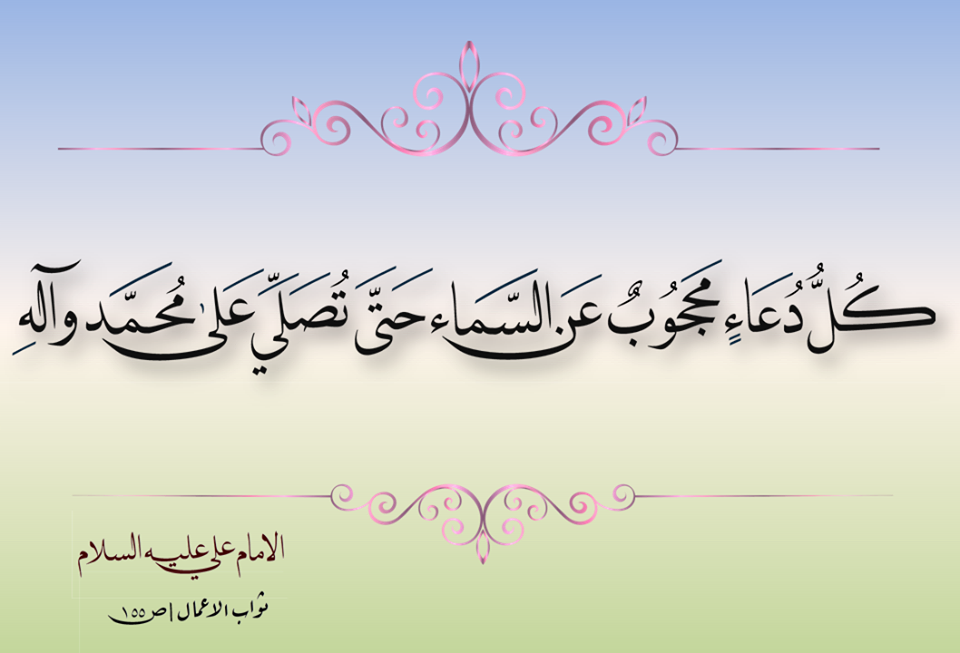 كُلُّ دُعَاءٍ مَحْجُوبٌ عَنِ السَّمَاء حَتَّىَ تُصَلِّيَ عَلىٰ مُحَمَّد وآلهِ
الامام علي عليه السلام
ثواب الاعمال | ص ١٥٥